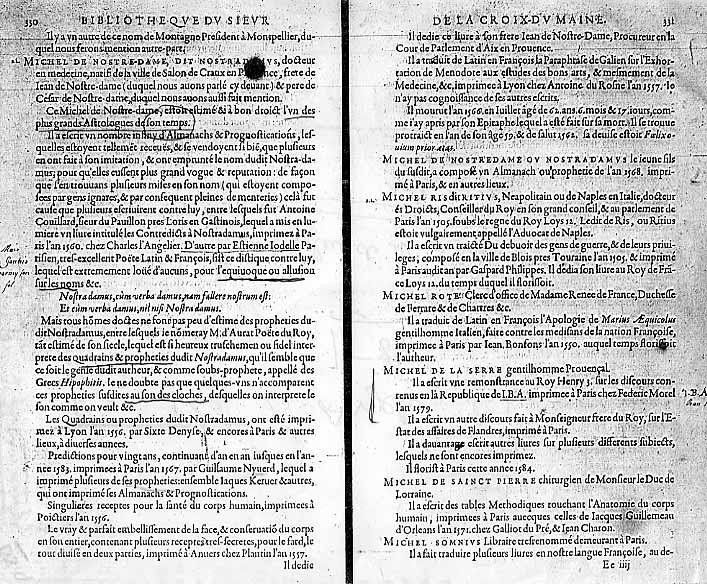 330 BIBLIOTHEQVE DV SIEVR
Il y a vn autre de ce nom de Montagne President à Montpellier, du-
quel nous ferons mention autre-part.
MICHEL DE NOSTRE-DAME, DIT NOSTRADAMVS, docteur
en medecine, natif de la ville de Salon de Craux en nce, frere de
Iean de Nostre-dame (duquel nous auons parlé cy deuant) & pere de
Cesar de Nostre-dame, duquel nous auons aussi fait mention.
Ce Michel de Nostre-dame, estoit estimé à bon droict l'vn des
plus grands Astrologues de son temps.
Il a escrit vn nombre infiny d'Almanachs & Prognostications, les-
quelles estoyent tellemēt receuës, & se vendoyent si bien, que plusieurs
en ont fait à son imitation, & ont emprunté le nom dudit Nostrada-
mus, pour qu'elles eussent plus grand vogue & reputation: de façon
que l'en trouua plusieurs mises en son nom (qui estoyent compo-
sées par gens ignares, & par consequent pleines de menteries) celà fut
cause que plusieurs escriuirent contre luy, entre lesquels fut Antoine
Couillard, sieur du Pauillon pres Loris en Gastinois, lequel a mis en lu-
miere vn liure intitulé les Contredicts à Nostradamus, imprimez à Pa-
ris l'an 1560. chez Charles l'Angelier. D'autre par Estienne Iodelle Pa-
risien, tres-excellent Poëte Latin & François, fist ce distique contre luy,
lequel est extremement loüé d'aucuns, pour l'equiuoque ou allusion
sur les noms &c.
Nostra damus, cùm verba damus, nam fallere nostrum est:
Et cùm verba damus, nil nisi Nostra damus.
Mais tous hōmes doctes ne font pas peu d'estime des propheties du-
dit Nostradamus, entre lesquels ie nōmeray M. d'Aurat Poëte du Roy,
tāt estimé de son siecle, lequel est si heureux truschemen ou fidel inter-
prete des Quadrains & propheties dudit Nostradamus, qu'il semble que
ce soit le genie dudit autheur, & comme soubs-prophete, appellé des
Grecs Hipophitis. Ie ne doubte pas que quelques-vns n'accomparent
ces propheties susdites au son des cloches, desquelles on interprete le
son comme on veult &c.
Les Quadrains ou propheties dudit Nostradamus, ont esté impri-
mez à Lyon l'an 1556. par Sixte Denyse, & encores à Paris & autres
lieux, à diuerses annees.
Predictions pour vingt ans, continuant d'an en an iusques en l'an-
née 1583. imprimees à Paris l'an 1567. par Guillaume Nyuerd, lequel a
imprimé plusieurs de ses propheties: ensemble Iaques Keruer & autres,
qui ont imprimé ses Almanachs & Prognostications.
Singulieres receptes pour la santé du corps humain, imprimees à
Poictiers l'an 1556.
Le vray & parfait embellissement de la face, & conseruatiō du corps
en son entier, contenant plusieurs receptes tres-secretes, pour le fard, le
tout diuisé en deux parties, imprimé à Anuers chez Plantin l'an 1557.
Il dedie
DE LA CROIX-DV MAINE. 331
Il dedie ce liure à son frere Iean de Nostre-Dame, Procureur en la
Cour de Parlement d'Aix en Prouence.
Il a traduit de Latin en François la Paraphrase de Galien sur l'Exhor-
tation de Menodote aux estudes des bons arts, & mesmement de la
Medecine, &c, imprimee à Lyon chez Antoine du Rosne l'an 1557. Ie
n'ay pas cognoissance de ses autres escrits.
Il mourut l'an 1566. en Iuillet âgé de 62. ans, 6. mois & 17. iours, com-
me i'ay apris par son Epitaphe lequel a esté fait sur sa mort. Il se trouue
protraict en l'an de son âge 59. & de salut 1562. sa deuise estoit Fœlix o-
uium prior ætas.
MICHEL DE NOSTREDAME OV NOSTRADAMVS le ieune fils
du susdit, a composé vn Almanach ou prophetie de l'an 1568. impri-
mé à Paris, & en autres lieux.
MICHEL RISDIRITIVS, Neapolitain ou de Naples en Italie, docteur
és Droicts, Conseiller du Roy en son grand conseil, & au parlement de
Paris l'an 1505. soubs le regne du Roy Loys 12. Ledit de Ris, ou Ritius
estoit vulgairement appellé l'Aduocat de Naples.
Il a escrit vn traicté Du debuoir des gens de guerre, & de leurs priui-
leges, composé en la ville de Blois pres Touraine l'an 1505. & imprimé
à Paris audit an par Gaspard Philippes. Il dedia son liure au Roy de Frā-
ce Loys 12. du temps duquel il florissoit.
MICHEL ROTE Clerc d'office de Madame Renee de France, Duchesse
de Ferrare & de Chartres &c.
Il a traduit de Latin en François l'Apologie de Marius Æquicolus
gentilhomme Italien, faite contre les medisans de la nation Françoise,
imprimee à Paris par Iean Bonfons l'an 1550. auquel temps florissoit
l'autheur.
MICHEL DE LA SERRE gentilhomme Prouençal.
Il a escrit vne remonstrance au Roy Henry 3. sur les discours con-
tenus en la Republique de I.B.A. imprimee à Paris chez Federic Morel
l'an 1579.
Il a escrit vn autre discours fait à Monseigneur frere du Roy, sur l'E-
stat des affaires de Flandres, imprimé à Paris.
Il a dauantage escrit autres liures sur plusieurs differents subiects,
lesquels ne sont encores imprimez.
Il florist à Paris cette annee 1584.
MICHEL DE SAINCT PIERRE chirurgien de Monsieur le Duc de
Lorraine.
Il a escrit des tables Methodiques touchant l'Anatomie du corps
humain, imprimees à Paris auecques celles de Iacques Guillemeau
d'Orleans l'an 1571. chez Galliot du Pré, & Iean Charon.
MICHEL SOMNIVS Libraire tresrenommé demeurant à Paris.
Il a fait traduire plusieurs liures en nostre langue Françoise, au de-
Ee iiij